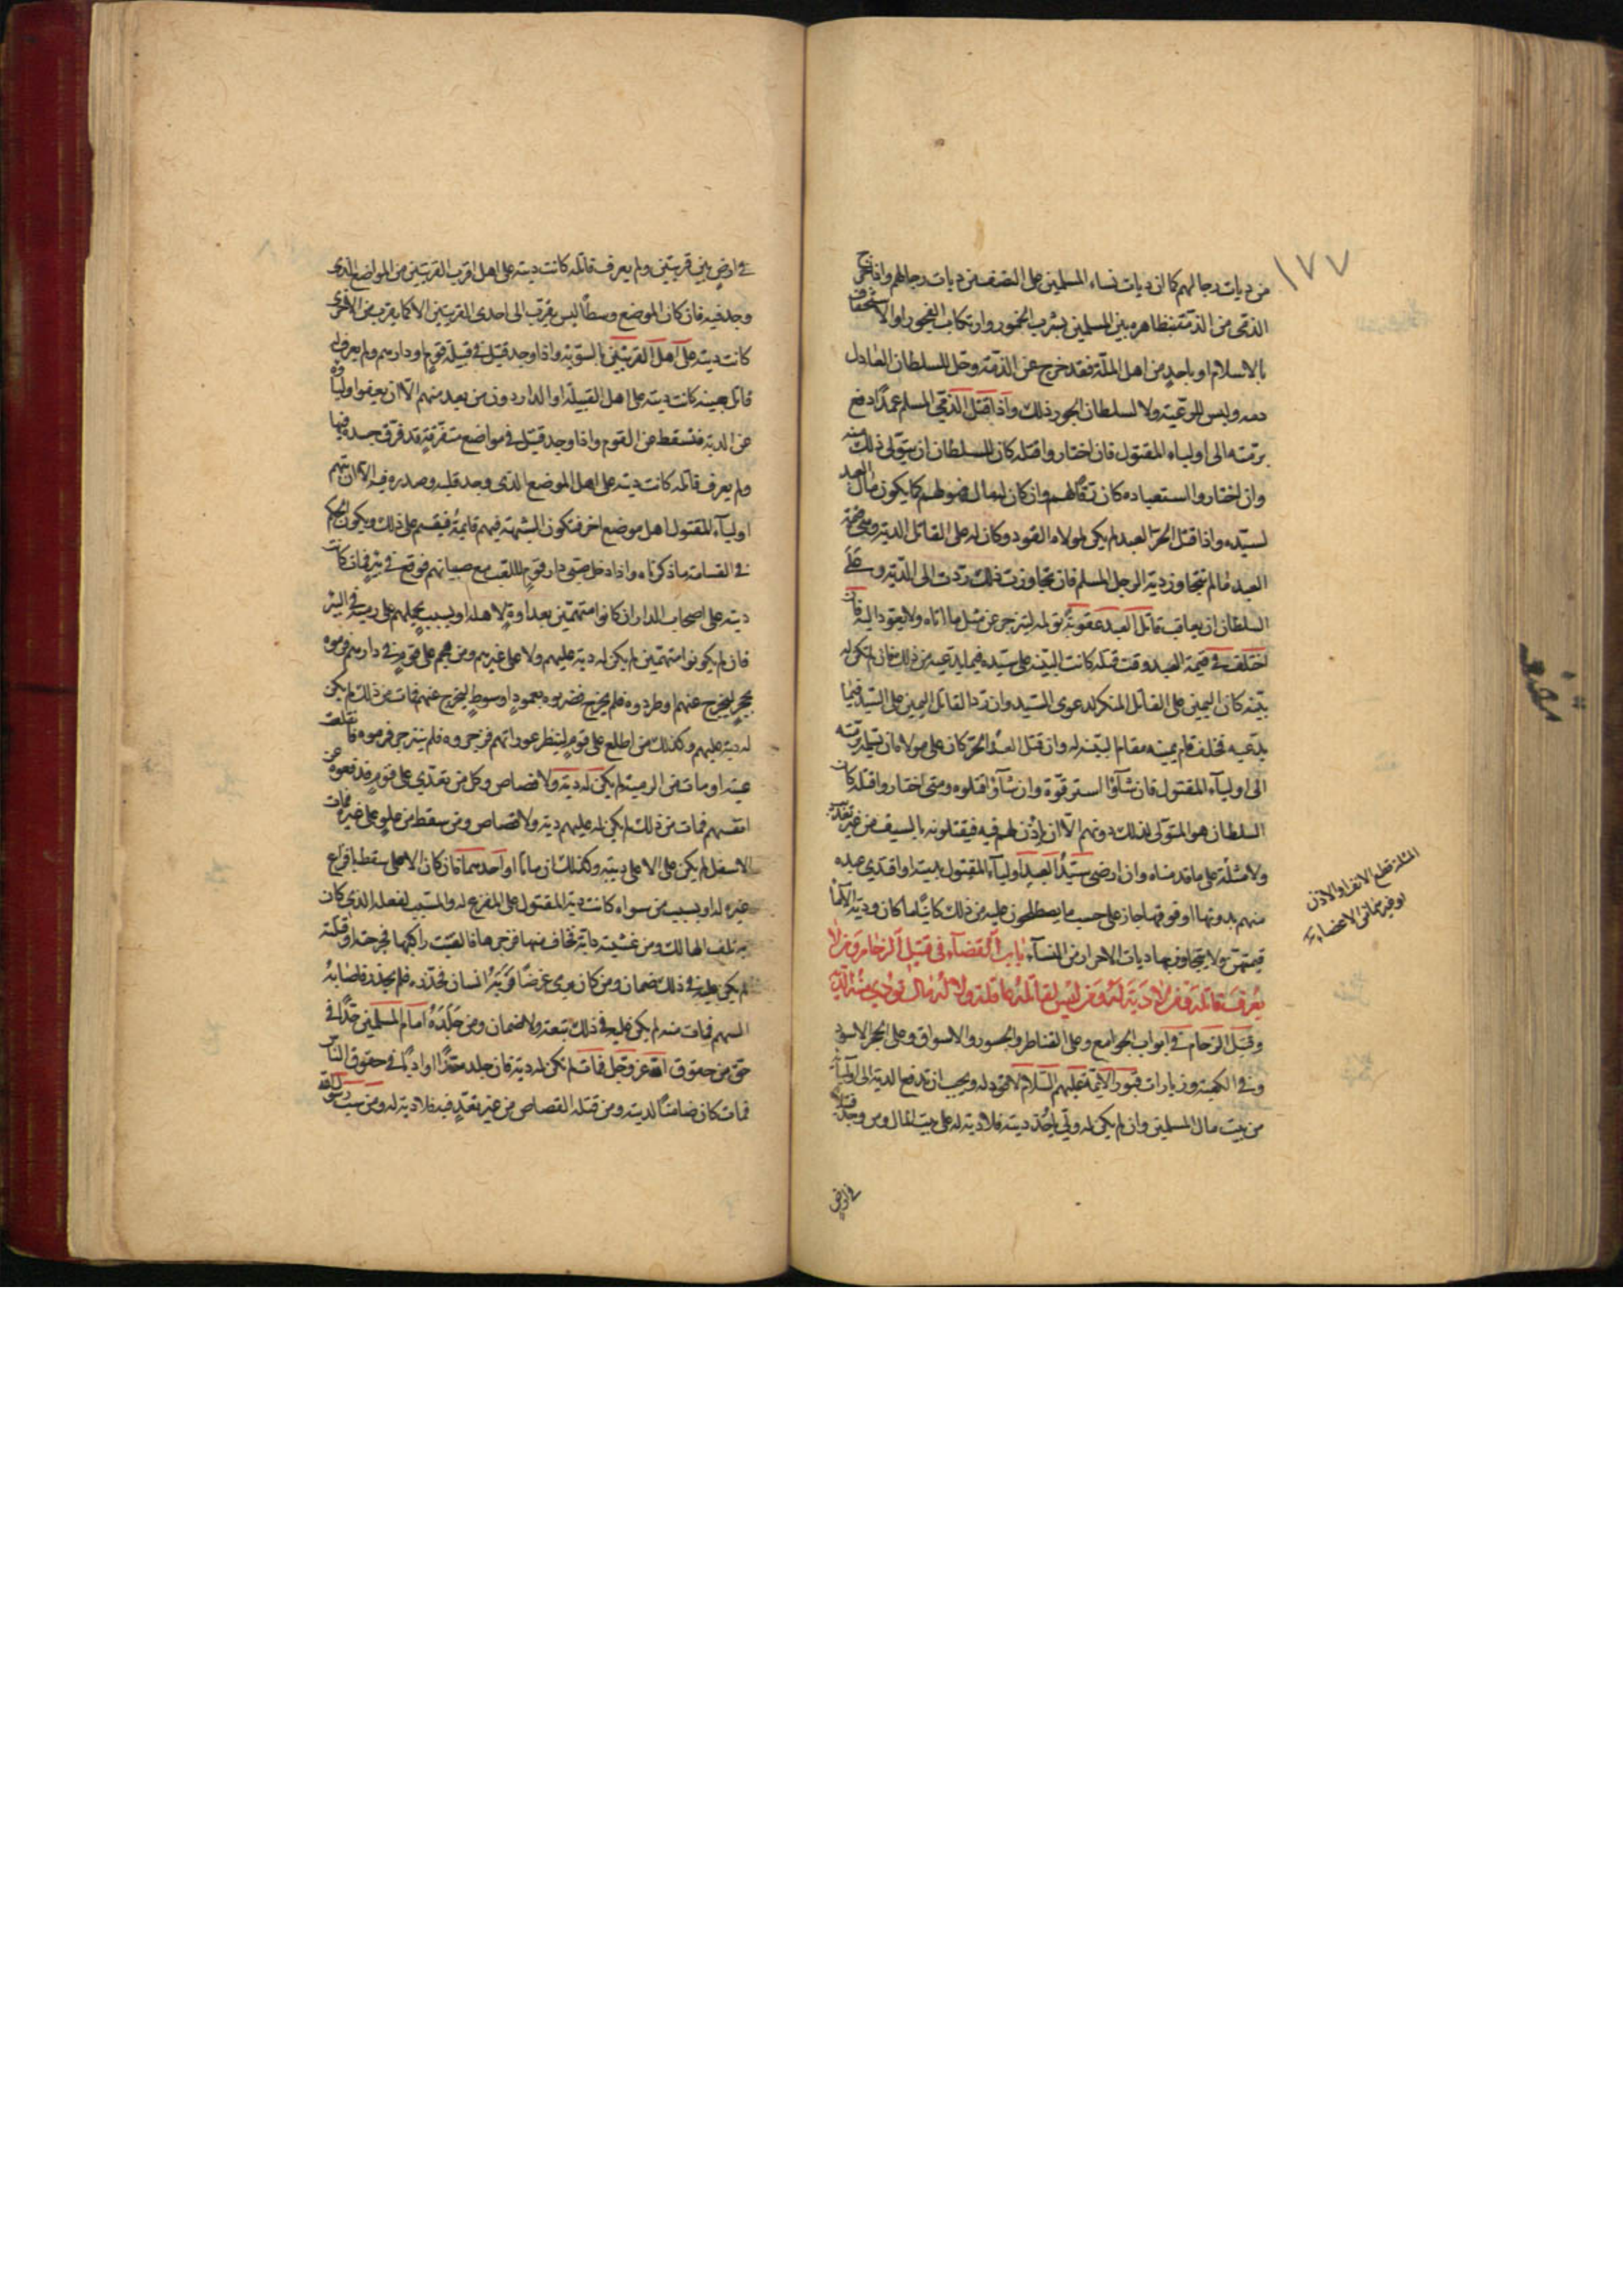 ١٧٧
من ديات رجالهم كما ان ديات نساء المسلمين على النصف من ديات رجالهم واذا خرج
الذمى من الذمة بتظاهره بين المسلمين بشرب الخمور وارتكاب الفجور او الاستخفاف
بالاسلام او باحد من اهل الملة فقد خرج عن الذمة وحل للسلطان العادل
دمه وليس للرعية ولا لسلطان الجور ذلك واذا قتل الذمى المسلم عمدا دفع
برمته الى اولياء المقتول فان اختاروا قتله كان السلطان ان يتولى ذلك منه
وان اختاروا استعباده كان رقا لهم وان كان له مال فهو لهم كما يكون مال العبد
لسيده واذا قتل الحر العبد لم يكن لمولاه القود وكان له على القاتل الدية وهى قيمة
العبد ما لم تتجاوز دية الرجل المسلم فان تجاوزت ذلك ردت الى الدية وعلى
السلطان ان يعاقب قاتل العبد عقوبة تؤلمه لينزجر عن مثل ما اتاه ولا يعود اليه فان
اختلف فى قيمة العبد وقت قتله كانت البينة على سيده فيما يدعيه من ذلك فان لم تكن له
بينة كان اليمين على القاتل المنكر لدعوى السيد وان رد القاتل اليمين على السيد فيما
يدعيه فحلف قام يمينه مقام البينة له وان قتل العبد الحر كان على مولاه ان يسلمه برمته
الى اولياء المقتول فان شآؤا استرقوه وان شآؤا قتلوه ومتى اختاروا قتله كان
السلطان هو المتولى لذلك دونهم الا ان ياذن لهم فيه فيقتلونه بالسيف من غير تعذيب
ولا مثلة على ما قدمناه وان ارضى سيد العبد اولياء المقتول بالدية او افتدى عبده
منهم بدونها او فوقها جاز على حسب ما يصطلحون عليه من ذلك كائنا ما كان ودية الاماء
قيمتهن ولا يتجاوز بها ديات الاحرار من النساء باب القضاء فى قتيل الزحام ومن لا
يعرف قاتله ومن لا دية له ومن ليس لقاتله عاقلة ولا له مال تؤدى منه الدية
وقتيل الزحام فى ابواب الجوامع وعلى القناطر والجسور والاسواق وعلى الحجر الاسود
وفى الكعبة وزيارات قبور الائمة عليهم السلام لا قود له ويجب ان تدفع الدية الى اوليائه
من بيت مال المسلمين وان لم يكن له ولى ياخذ ديته فلا دية له على بيت المال ومن وجد قتيلا
فى ارض
المثلة قطع الانف والاذن
او غير ذلك من الاعضاء
فى ارض بين قريتين ولم يعرف قاتله كانت ديته على اهل اقرب القريتين من الموضع الذى
وجد فيه فان كان الموضع وسطا ليس يقرب الى احدى القريتين الا كما يقرب من الاخرى
كانت ديته على اهل القريتين بالسوية واذا وجد قتيل فى قبيلة قوم او دارهم ولم يعرف له
قاتل بعينه كانت ديته على اهل القبيلة او الدار دون من بعد منهم الا ان يعفوا اولياؤه
عن الدية فتسقط عن القوم واذا وجد قتيل فى مواضع متفرقة قد فرق جسده فيها
ولم يعرف قاتله كانت ديته على اهل الموضع الذى وجد قلبه وصدره فيه الا ان يتهم
اولياء المقتول اهل موضع اخر فتكون الشبهة فيهم قائمة فيقسم على ذلك ويكون الحكم
فى القسامة ما ذكرناه واذا دخل صبى دار قوم للعب مع صبيانهم فوقع فى بئر فمات كانت
ديته على اصحاب الدار ان كانوا متهمين بعداوة لاهله او بسبب يحملهم على رميه فى البئر
فان لم يكونوا متهمين لم يكن له دية عليهم ولا على غيرهم ومن هجم على قوم فى دارهم فرموه
بحجر ليخرج عنهم او طردوه فلم يخرج فضربوه بعمود او سوط ليخرج عنهم فمات من ذلك لم يكن
له دية عليهم وكذلك من اطلع على قوم لينظر عوراتهم فزجروه فلم ينزجر فرموه فانقلعت
عينه او مات من الرمية لم يكن له دية ولا قصاص وكل من تعدى على قوم فدفعوه عن
انفسهم فمات من ذلك لم يكن له عليهم دية ولا قصاص ومن سقط من علو على غيره فمات
الاسفل لم يكن على الاعلى ديته وكذلك ان ماتا او احدهما فان كان الاعلى سقط بافزاع
غيره له او بسبب من سواه كانت دية المقتول على المفزع له والمسبب لفعله الذى كان
به تلف الهالك ومن غشيته دابة فخاف منها فزجرها فالقت راكبها فجرحته او قتلته
لم يكن عليه فى ذلك ضمان ومن كان يرمى غرضا فمر به انسان فحذره فلم يحذر فاصابه
السهم فمات منه لم يكن عليه فى ذلك تبعة ولا ضمان ومن جلده امام المسلمين حدا فى
حق من حقوق الله عز وجل فمات لم يكن له دية فان جلده حدا او ادبا فى حقوق الناس
فمات كان ضامنا لديته ومن قتله القصاص من غير تعد فيه فلا دية له ومن سب رسول الله